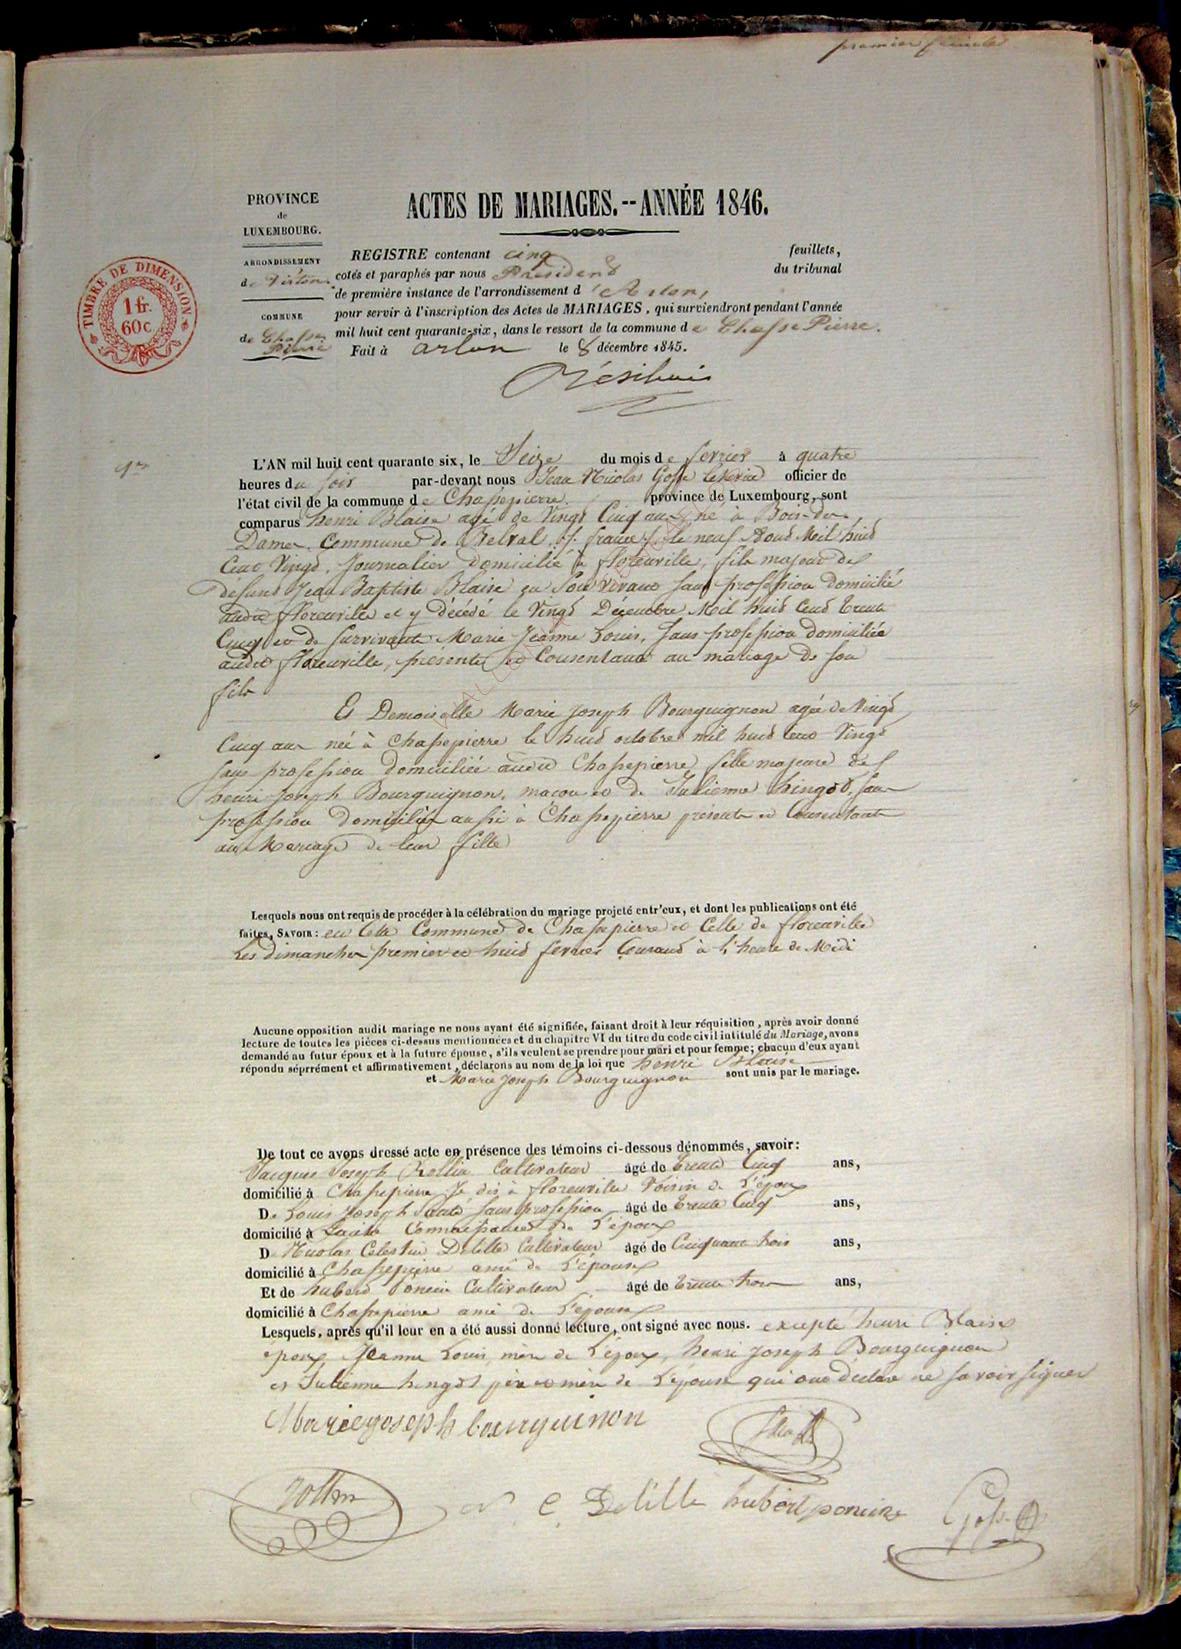 premier feuillet
PROVINCE
de
LUXEMBOURG.
ARRONDISSEMENT
de Virton
COMMUNE
de Chasse
Pierre
TIMBRE DE DIMENSION
1 fr.
60 c
ACTES DE MARIAGES.--ANNÉE 1846.
REGISTRE contenant cinq feuillets,
cotés et paraphés par nous Président du tribunal
de première instance de l'arrondissement d'Arlon,
pour servir à l'inscription des Actes de MARIAGES, qui surviendront pendant l'année
mil huit cent quarante-six, dans le ressort de la commune de Chasse Pierre.
Fait à arlon le 8 décembre 1845.
L'AN mil huit cent quarante six, le Seize du mois de fevrier à quatre
heures du soir par-devant nous Jean Nicolas Gosse officier de
l'état civil de la commune de Chassepierre province de Luxembourg, sont
comparus henri Blaise agé de Vingt Cinq ans né à Bois-du-
Dames Commune de Belval france le neuf Aout Mil huit
Cent Vingt, Journalier domicilié à florenville, fils majeur de
défunt Jean Baptiste Blaise en son vivant sans profession domicilié
audit florenville et y décédé le Vingt Décembre Mil huit Cent trente
Cinq et de survivante Marie Jeanne Louis, sans profession domiciliée
audit florenville, présente et Consentant au mariage de son
fils
Et Demoiselle Marie Joseph Bourguignon agée de Vingt
Cinq ans née à Chassepierre le huit octobre mil huit cent Vingt
sans profession domiciliée audit Chassepierre fille majeure de
henri Joseph Bourguignon, maçon et de Julienne hingot, sans
profession domiciliés aussi à Chassepierre présents et Consentant
au Mariage de leur fille
Lesquels nous ont requis de procéder à la célébration du mariage projeté entr'eux, et dont les publications ont été
faites, SAVOIR: en Cette Commune de Chassepierre et Celle de florenville
Les dimanches premier et huit fevrier Courant à l'heure de Midi
Aucune opposition audit mariage ne nous ayant été signifiée, faisant droit à leur réquisition, après avoir donné
lecture de toutes les pièces ci-dessus mentionnées et du chapitre VI du titre du code civil intitulé du Mariage, avons
demandé au futur époux et à la future épouse, s'ils veulent se prendre pour mari et pour femme; chacun d'eux ayant
répondu séprrément et affirmativement, déclarons au nom de la loi que henri Blaise
et Marie Joseph Bourguignon sont unis par le mariage.
De tout ce avons dressé acte en présence des témoins ci-dessous dénommés, savoir:
Jacques Joseph Rollin Cultivateur âgé de trente Cinq ans,
domicilié à Chassepierre Je dis à florenville Voisin de L'époux
De Louis Joseph sans profession âgé de trente Cinq ans,
domicilié à Connaissance de L'époux
De Nicolas Celestin Delille Cultivateur âgé de Cinquante trois ans,
domicilié à Chassepierre ami de L'épouse
Et de hubert Poncin Cultivateur âgé de trente trois ans,
domicilié à Chassepierre ami de L'épouse
Lesquels, après qu'il leur en a été aussi donné lecture, ont signé avec nous. excepté henri Blaise
époux Jeanne Louis, mère de L'époux, henri Joseph Bourguignon
et Julienne hingot père et mère de L'épouse qui ont déclaré ne savoir signer
Marie joseph bourguinon
rollin
N C Delille
hubert poncin
Gosse